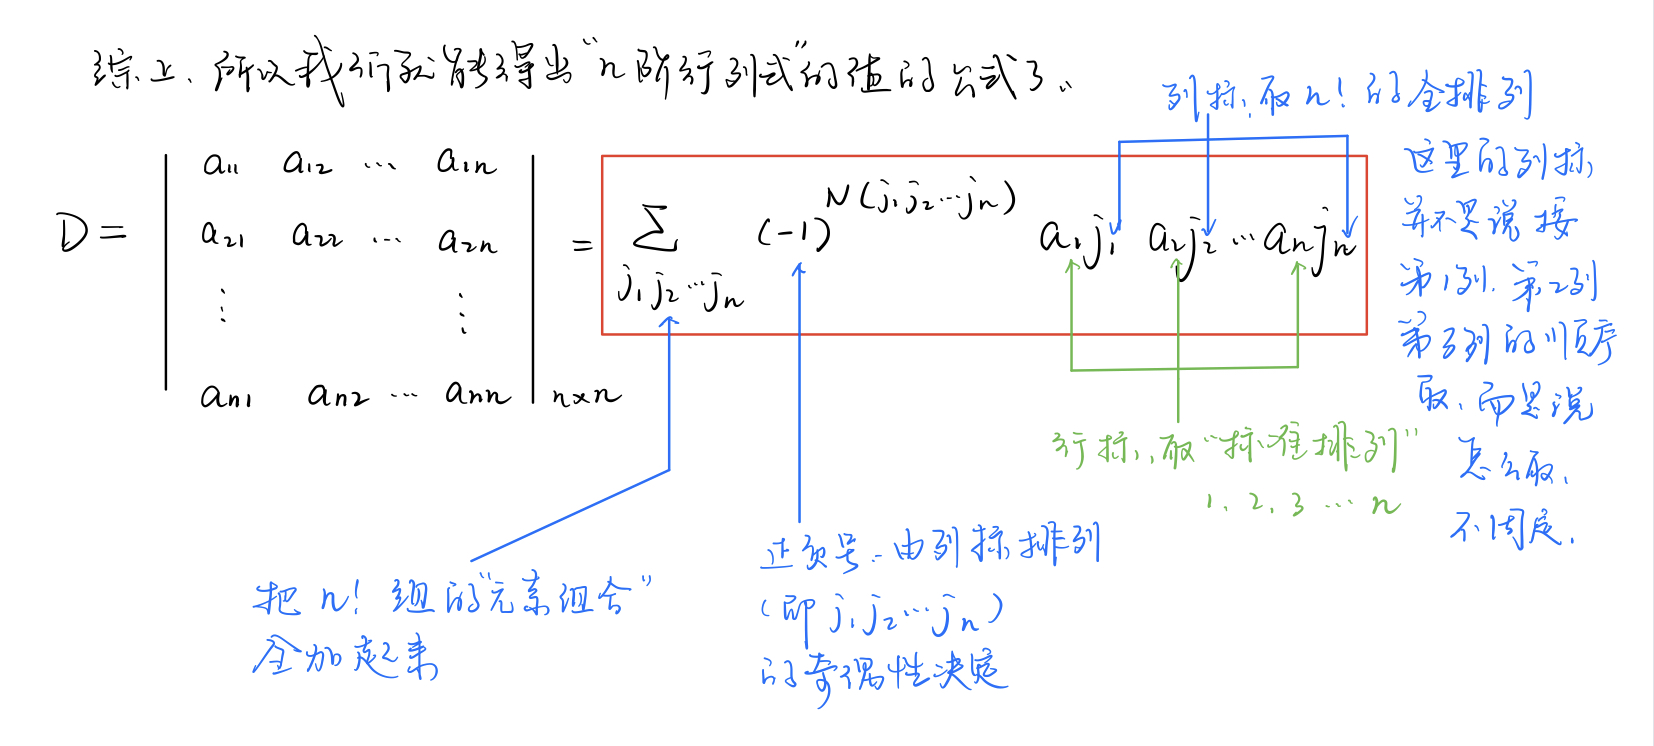 综上，所以我们就能得出“n阶行列式”的值的公式了。
D = | a₁₁ a₁₂ ⋯ a₁ₙ |
| a₂₁ a₂₂ ⋯ a₂ₙ |
| ⋮ ⋮ |
| aₙ₁ aₙ₂ ⋯ aₙₙ | n×n
= ∑_{j₁j₂⋯jₙ} (-1)^{N(j₁j₂⋯jₙ)} a₁j₁ a₂j₂ ⋯ aₙjₙ
列标，取n！的全排列
这里的列标，
并不是说按
第1列、第2列
第3列的顺序
取，而是说
怎么取，
不固定．
行标，取“标准排列”
1，2，3 ⋯ n
正负号．由列标排列
（即j₁j₂⋯jₙ）
的奇偶性决定
把n！组的“元素组合”
全加起来